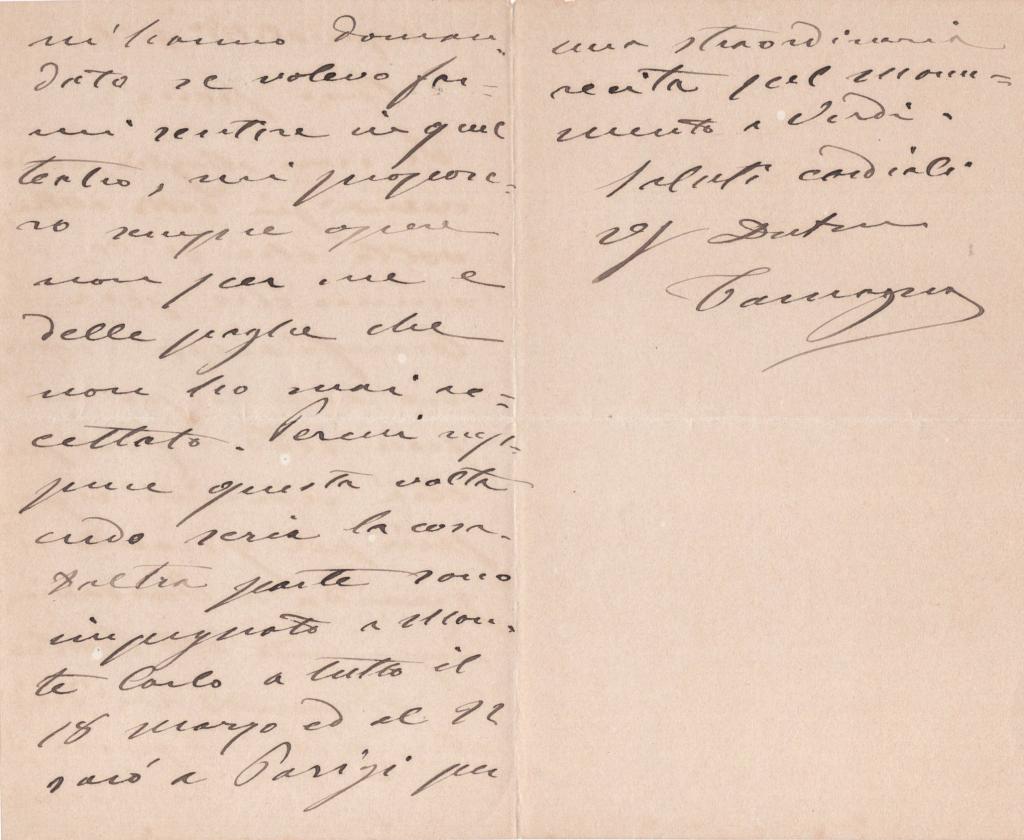 m'hanno doman-
dato se volevo far=
mi sentire in quel
teatro, mi propose-
ro sempre opere
non per me e
delle paghe che
non ho mai ac=
cettato. Percui
pure questa volta
credo seria la cosa.
D'altra parte sono
impegnato a Mon-
te Carlo a tutto il
18 marzo ed al 22
sarò a Parigi per
una straordinaria
recita pel monu=
mento a Verdi.
Saluti cordiali
Tamagno